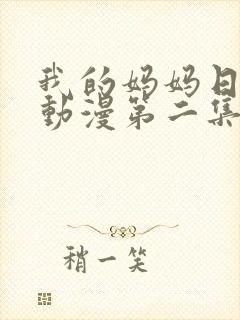 我的妈妈日
動漫第二集
稍一笑